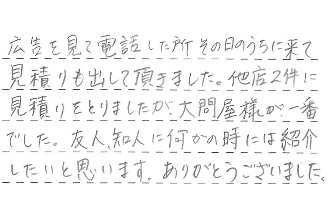 広告を見て電話した所その日のうちに来て
見積りも出して頂きました。他店2件に
見積りをとりましたが、大問屋様が、一番
でした。友人、知人に何かの時には紹介
したいと思います。ありがとうございました。